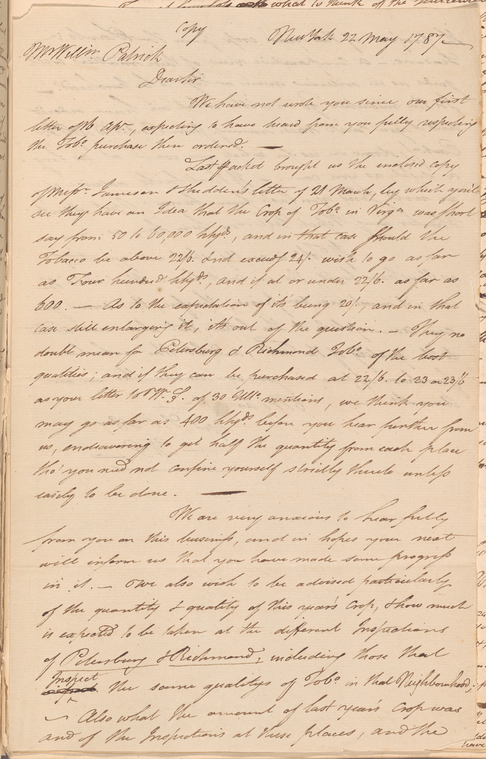 Copy
New York 22 May 1787
Mr Willm Patrick
Dear Sir
We have not wrote you since our first
letter of 16 Apr., expecting to have heard from you fully respecting
the Tobo. purchase then ordered. —
Last Packet brought us the enclosed copy
of Messrs. Jamieson & letter of 21 March, by which you'll
see they have an Idea that the Crop of Tobo. in Virga. was short
say from 50 to 60,000 hhds., and in that case should the
Tobacco be above 22/6 & not exceed 24/. wish to go as far
as Four hundred hhds., and if at or under 22/6. as far as
600. — As to the expectation of its being 20/. and in that
case still enlarging it, its out of the question. — They no
doubt mean for Petersburg & Richmond Tobo. of the best
qualities; and if they can be purchased at 22/6. to 23 or 23/6
as your letter to of 30 Ulto. mentions, we think you
may go as far as 400 hhds. before you hear further from
us, endeavoring to get half the quantity from each place
tho' you need not confine yourself strictly thereto unless
easily to be done. —
We are very anxious to hear fully
from you on this business, and in hopes your next
will inform us that you have made some progress
in it. — we also wish to be advised particularly
of the quantity & quality of this year's Crop, & how much
is expected to be taken at the different Inspections
of Petersburg & Richmond, including those that
Inspect
the same qualitys of Tobo. in that Neighbourhood;
— Also what the amount of last year's Crop was
and of the Inspections at these places, and the